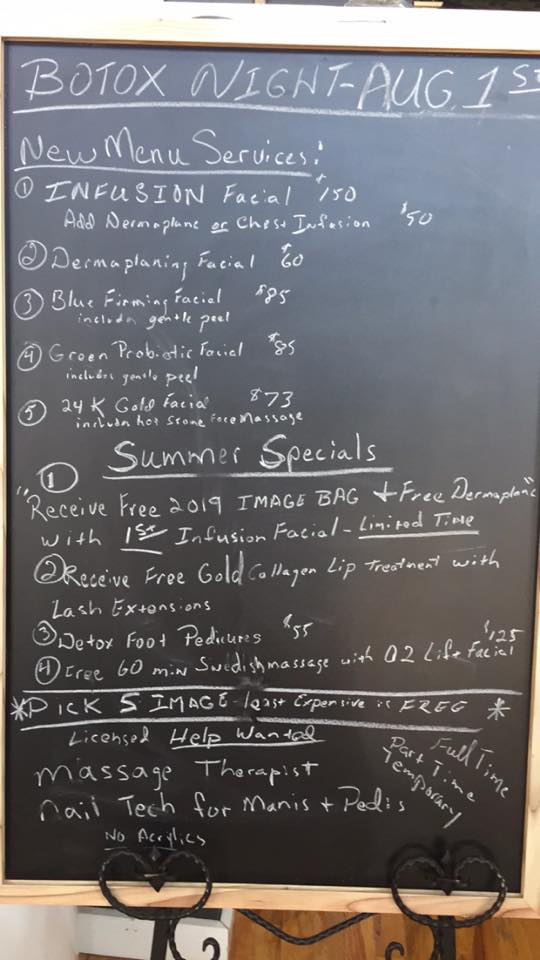 BOTOX NIGHT-AUG. 1st
New Menu Services:
① INFUSION Facial $150
Add Dermaplane or Chest Infusion $50
② Dermaplaning Facial $60
③ Blue Firming Facial $85
includes gentle peel
④ Green Probiotic Facial $85
includes gentle peel
⑤ 24 K Gold Facial $73
includes hot stone Face Massage
Summer Specials
①
"Receive Free 2019 IMAGE BAG + Free Dermaplane"
with 1st Infusion Facial - Limited Time
② Receive Free Gold Collagen Lip Treatment with
Lash Extensions
③ Detox Foot Pedicures $55
④ Free 60 min Swedish massage with O2 Lift Facial $125
*PICK 5 IMAGE - least Expensive is FREE *
Licensed Help Wanted
Massage Therapist
Nail Tech for Manis + Pedis
No Acrylics
Full Time
Part Time
Temporary